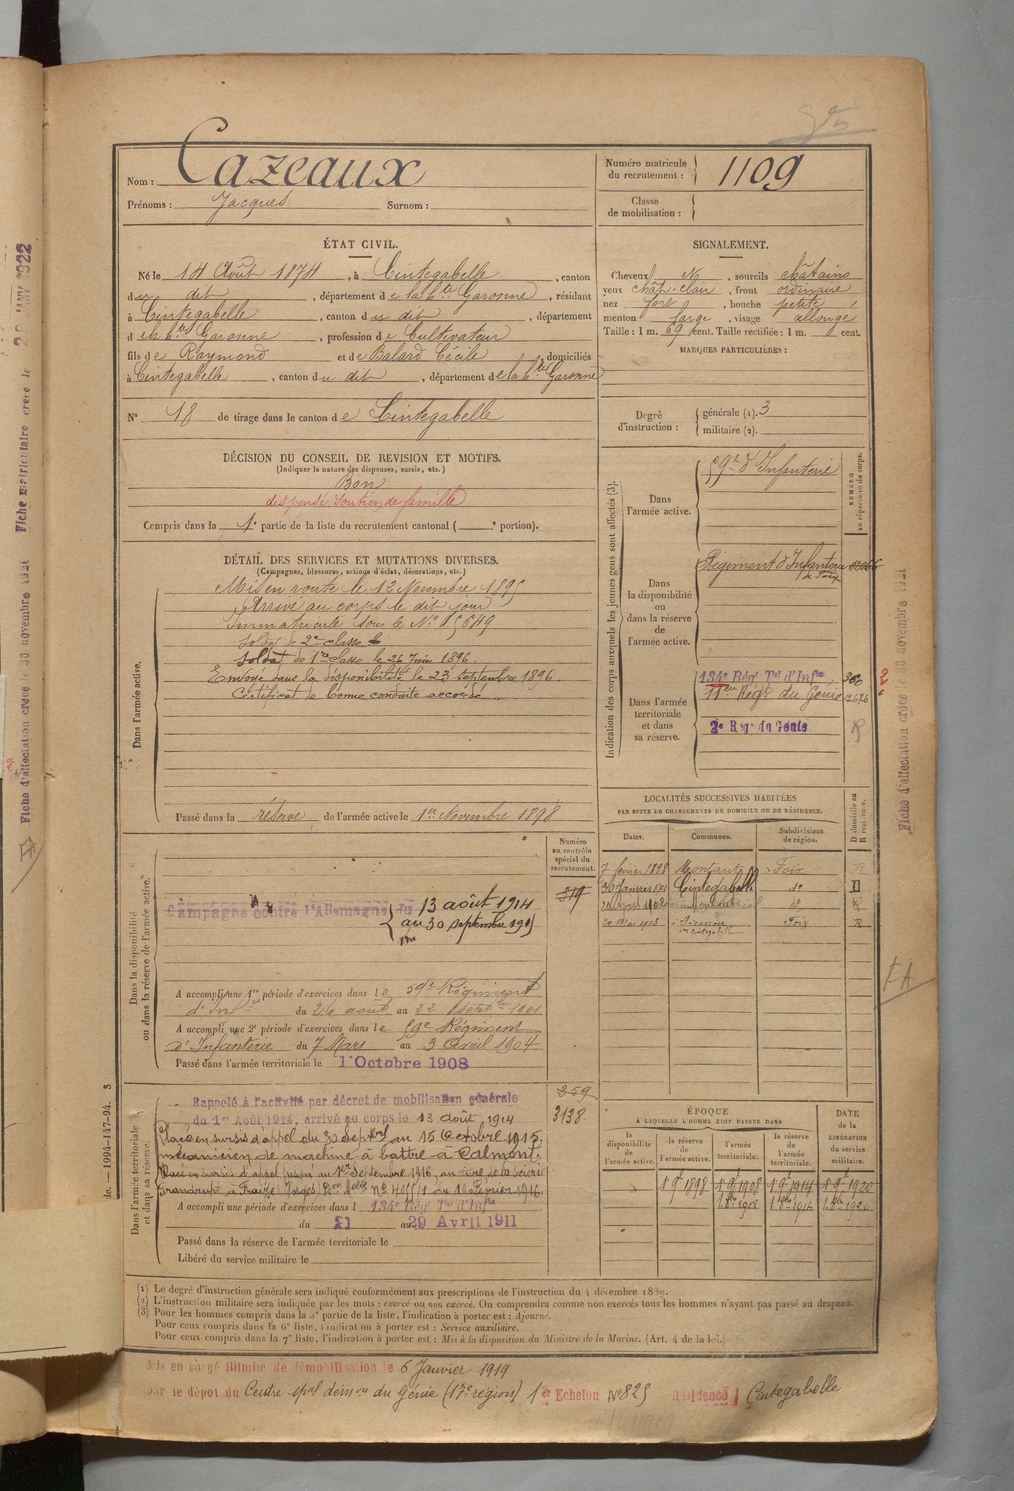 Nom : Cazeaux
Prénoms : Jacques Surnom :
Numéro matricule du recrutement : 1109
Classe de mobilisation :
ÉTAT CIVIL.
Né le 14 Août 1874, à Cintegabelle, canton
du dit, département de la hte Garonne, résidant
à Cintegabelle, canton du dit, département
de la hte Garonne, profession de Cultivateur
fils de Raymond et de Balard Cécile, domiciliés
à Cintegabelle, canton du dit, département de la hte Garonne
N° 18 de tirage dans le canton de Cintegabelle
SIGNALEMENT.
Cheveux N, sourcils châtains
yeux chât-clair, front ordinaire
nez fort, bouche petite
menton large, visage allongé
Taille : 1 m. 69 cent. Taille rectifiée : 1 m. cent.
MARQUES PARTICULIÈRES :
Degré d'instruction :
générale (1). 3
militaire (2).
DÉCISION DU CONSEIL DE REVISION ET MOTIFS.
(Indiquer la nature des dispenses, sursis, etc.)
Bon
dispensé soutien de famille
Compris dans la 1e partie de la liste du recrutement cantonal ( e portion).
DÉTAIL DES SERVICES ET MUTATIONS DIVERSES.
(Campagnes, blessures, actions d'éclat, décorations, etc.)
Dans l'armée active.
Mis en route le 12 Novembre 1895
Arrivé au corps le dit jour
Immatriculé sous le N° 15649
Soldat de 2e classe
Soldat de 1re classe le 26 Juin 1896.
Envoyé dans la disponibilité le 23 Septembre 1896.
Certificat de bonne conduite accordé
Passé dans la réserve de l'armée active le 1er Novembre 1898
Indication des corps auxquels les jeunes gens sont affectés (3).
NUMÉRO au répertoire du corps.
Dans l'armée active.
59e d'Infanterie
Dans la disponibilité ou dans la réserve de l'armée active.
Régiment d'Infanterie de Foix
Dans l'armée territoriale et dans sa réserve.
134e Rég. Tal d'Infie
Régt du Génie
2e Rgt du Génie
R
LOCALITÉS SUCCESSIVES HABITÉES
PAR SUITE DE CHANGEMENTS DE DOMICILE OU DE RÉSIDENCE.
Dates. Communes. Subdivisions de région. D domicile ou R résidence.
7 février 1898 Foix
30 Janvier 1901 Cintegabelle do D
do R
Cintegabelle Foix R
Dans la disponibilité ou dans la réserve de l'armée active.
Numéro au contrôle spécial du recrutement.
319
Campagne contre l'Allemagne du
13 août 1914
au 30 septembre 1915
A accompli une 1re période d'exercices dans le 59e Régiment
d'Inf du 26 août au 22 Septbre 1901
A accompli une 2e période d'exercices dans le 59e Régiment
d'Infanterie du 7 Mars au 3 Avril 1904
Passé dans l'armée territoriale le 1 Octobre 1908
Dans l'armée territoriale et dans sa réserve.
359
3138
Rappelé à l'activité par décret de mobilisation générale
du 1er Août 1914, arrivé au corps le 13 août 1914
Placé en sursis d'appel du 30 Septbre au 15 Octobre 1915,
mécanicien de machine à battre à Calmont.
Placé en sursis d'appel jusqu'au 1er Septembre 1916, au titre de la scierie
Grandrupt à Fraize, Vosges, N° 4055/1 du 1 Février 1916.
A accompli une période d'exercices dans l 134e Rég. Tal d'Infie
du 21 au 29 Avril 1911
Passé dans la réserve de l'armée territoriale le
Libéré du service militaire le
ÉPOQUE
A LAQUELLE L'HOMME DOIT PASSER DANS
la disponibilité de l'armée active. la réserve de l'armée active. l'armée territoriale. la réserve de l'armée territoriale.
DATE de la LIBÉRATION du service militaire.
1 9e 1898 1 9e 1908 1 9e 1914 1 9e 1920
1 8bre 1908 1 8bre 1914 1 8bre 1920
(1) Le degré d'instruction générale sera indiqué conformément aux prescriptions de l'instruction du 4 décembre 1889.
(2) L'instruction militaire sera indiquée par les mots : exercé ou non exercé. On comprendra comme non exercés tous les hommes n'ayant pas passé au drapeau.
(3) Pour les hommes compris dans la 5e partie de la liste, l'indication à porter est : Ajourné.
Pour ceux compris dans la 6e liste, l'indication à porter est : Service auxiliaire.
Pour ceux compris dans la 7e liste, l'indication à porter est : Mis à la disposition du Ministre de la Marine. (Art. 4 de la loi.)
Mis en congé illimité de démobilisation le 6 Janvier 1919
par le dépot du Centre spal démon du Génie (17e région) 1er Echelon N° 825 Résidence Cintegabelle
Fiche d'affectation créée le 30 novembre 1921
Fiche matriculaire créée le JANV 1922
Fiche d'affectation créée le 30 novembre 1921
FA
FA
de. — 1994-147-94. 3